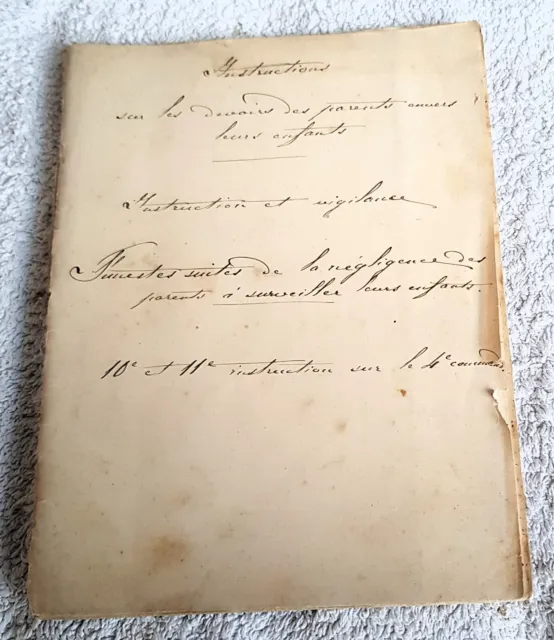 Instructions
sur les devoirs des parents envers
leurs enfants
Instruction et vigilance
Funestes suites de la négligence des
parents à surveiller leurs enfants.
10e et 11e instruction sur le 4e command.